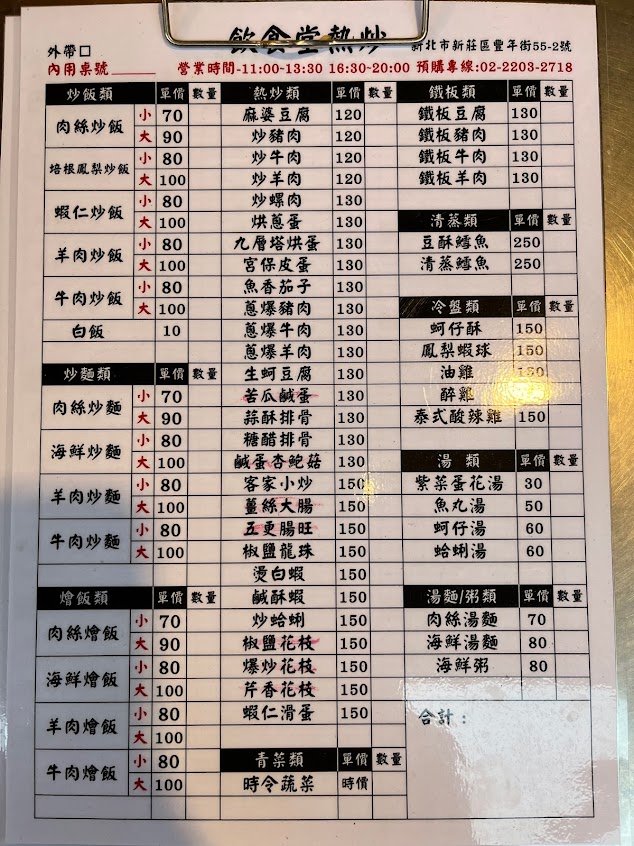 飲食堂熱炒
外帶口
新北市新莊區豐年街55-2號
內用桌號______ 營業時間-11:00~13:30 16:30~20:00 預購專線:02-2203-2718
炒飯類 單價 數量
肉絲炒飯 小 70
大 90
培根鳳梨炒飯 小 80
大 100
蝦仁炒飯 小 80
大 100
羊肉炒飯 小 80
大 100
牛肉炒飯 小 80
大 100
白飯 10
炒麵類 單價 數量
肉絲炒麵 小 70
大 90
海鮮炒麵 小 80
大 100
羊肉炒麵 小 80
大 100
牛肉炒麵 小 80
大 100
燴飯類 單價 數量
肉絲燴飯 小 70
大 90
海鮮燴飯 小 80
大 100
羊肉燴飯 小 80
大 100
牛肉燴飯 小 80
大 100
熱炒類 單價 數量
麻婆豆腐 120
炒豬肉 120
炒牛肉 120
炒羊肉 120
炒螺肉 130
烘蔥蛋 130
九層塔烘蛋 130
宮保皮蛋 130
魚香茄子 130
蔥爆豬肉 130
蔥爆牛肉 130
蔥爆羊肉 130
生蚵豆腐 130
苦瓜鹹蛋 130
蒜酥排骨 130
糖醋排骨 130
鹹蛋杏鮑菇 130
客家小炒 150
薑絲大腸 150
五更腸旺 150
椒鹽龍珠 150
燙白蝦 150
鹹酥蝦 150
炒蛤蜊 150
椒鹽花枝 150
爆炒花枝 150
芹香花枝 150
蝦仁滑蛋 150
青菜類 單價 數量
時令蔬菜 時價
鐵板類 單價 數量
鐵板豆腐 130
鐵板豬肉 130
鐵板牛肉 130
鐵板羊肉 130
清蒸類 單價 數量
豆酥鱈魚 250
清蒸鱈魚 250
冷盤類 單價 數量
蚵仔酥 150
鳳梨蝦球 150
油雞 150
醉雞
泰式酸辣雞 150
湯類 單價 數量
紫菜蛋花湯 30
魚丸湯 50
蚵仔湯 60
蛤蜊湯 60
湯麵/粥類 單價 數量
肉絲湯麵 70
海鮮湯麵 80
海鮮粥 80
合計：